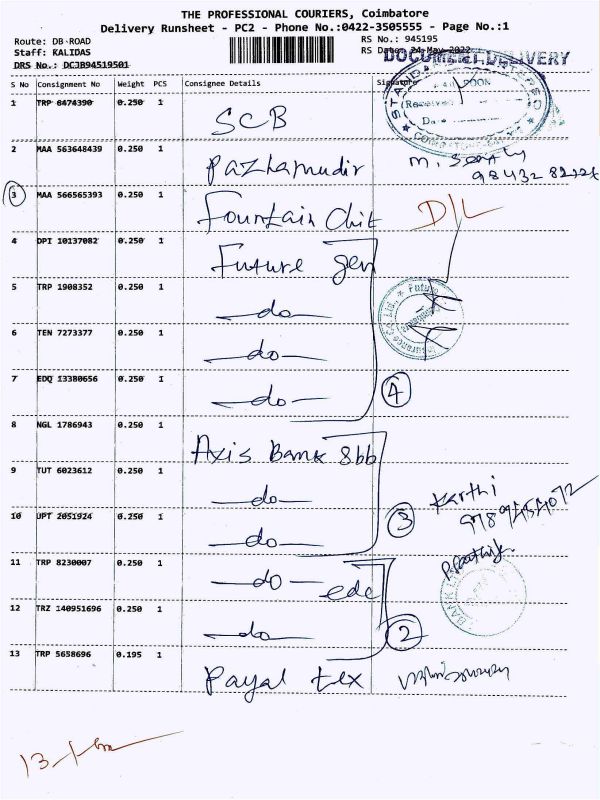 THE PROFESSIONAL COURIERS, Coimbatore
Delivery Runsheet - PC2 - Phone No.:0422-3505555 - Page No.:1
Route: DB-ROAD RS No.: 945195
Staff: KALIDAS RS Date: 24-May-2022
DOCUMENT DELIVERY
DRS No.: DC3B94519501
S No Consignment No Weight PCS Consignee Details Signature
1 TRP 6474390 0.250 1 SCB
2 MAA 563648439 0.250 1 Pazhamudir
3 MAA 566565393 0.250 1 Fountain Chit D/L
4 DPI 10137082 0.250 1 Future gen
5 TRP 1908352 0.250 1 -do-
6 TEN 7273377 0.250 1 -do-
7 EDQ 13380656 0.250 1 -do- 4
8 NGL 1786943 0.250 1 Axis Bank 8bb
9 TUT 6023612 0.250 1 -do- Karthi
10 UPT 2051924 0.250 1 -do- 3
11 TRP 8230007 0.250 1 -do- edc
12 TRZ 140951696 0.250 1 -do- 2
13 TRP 5658696 0.195 1 Payal tex